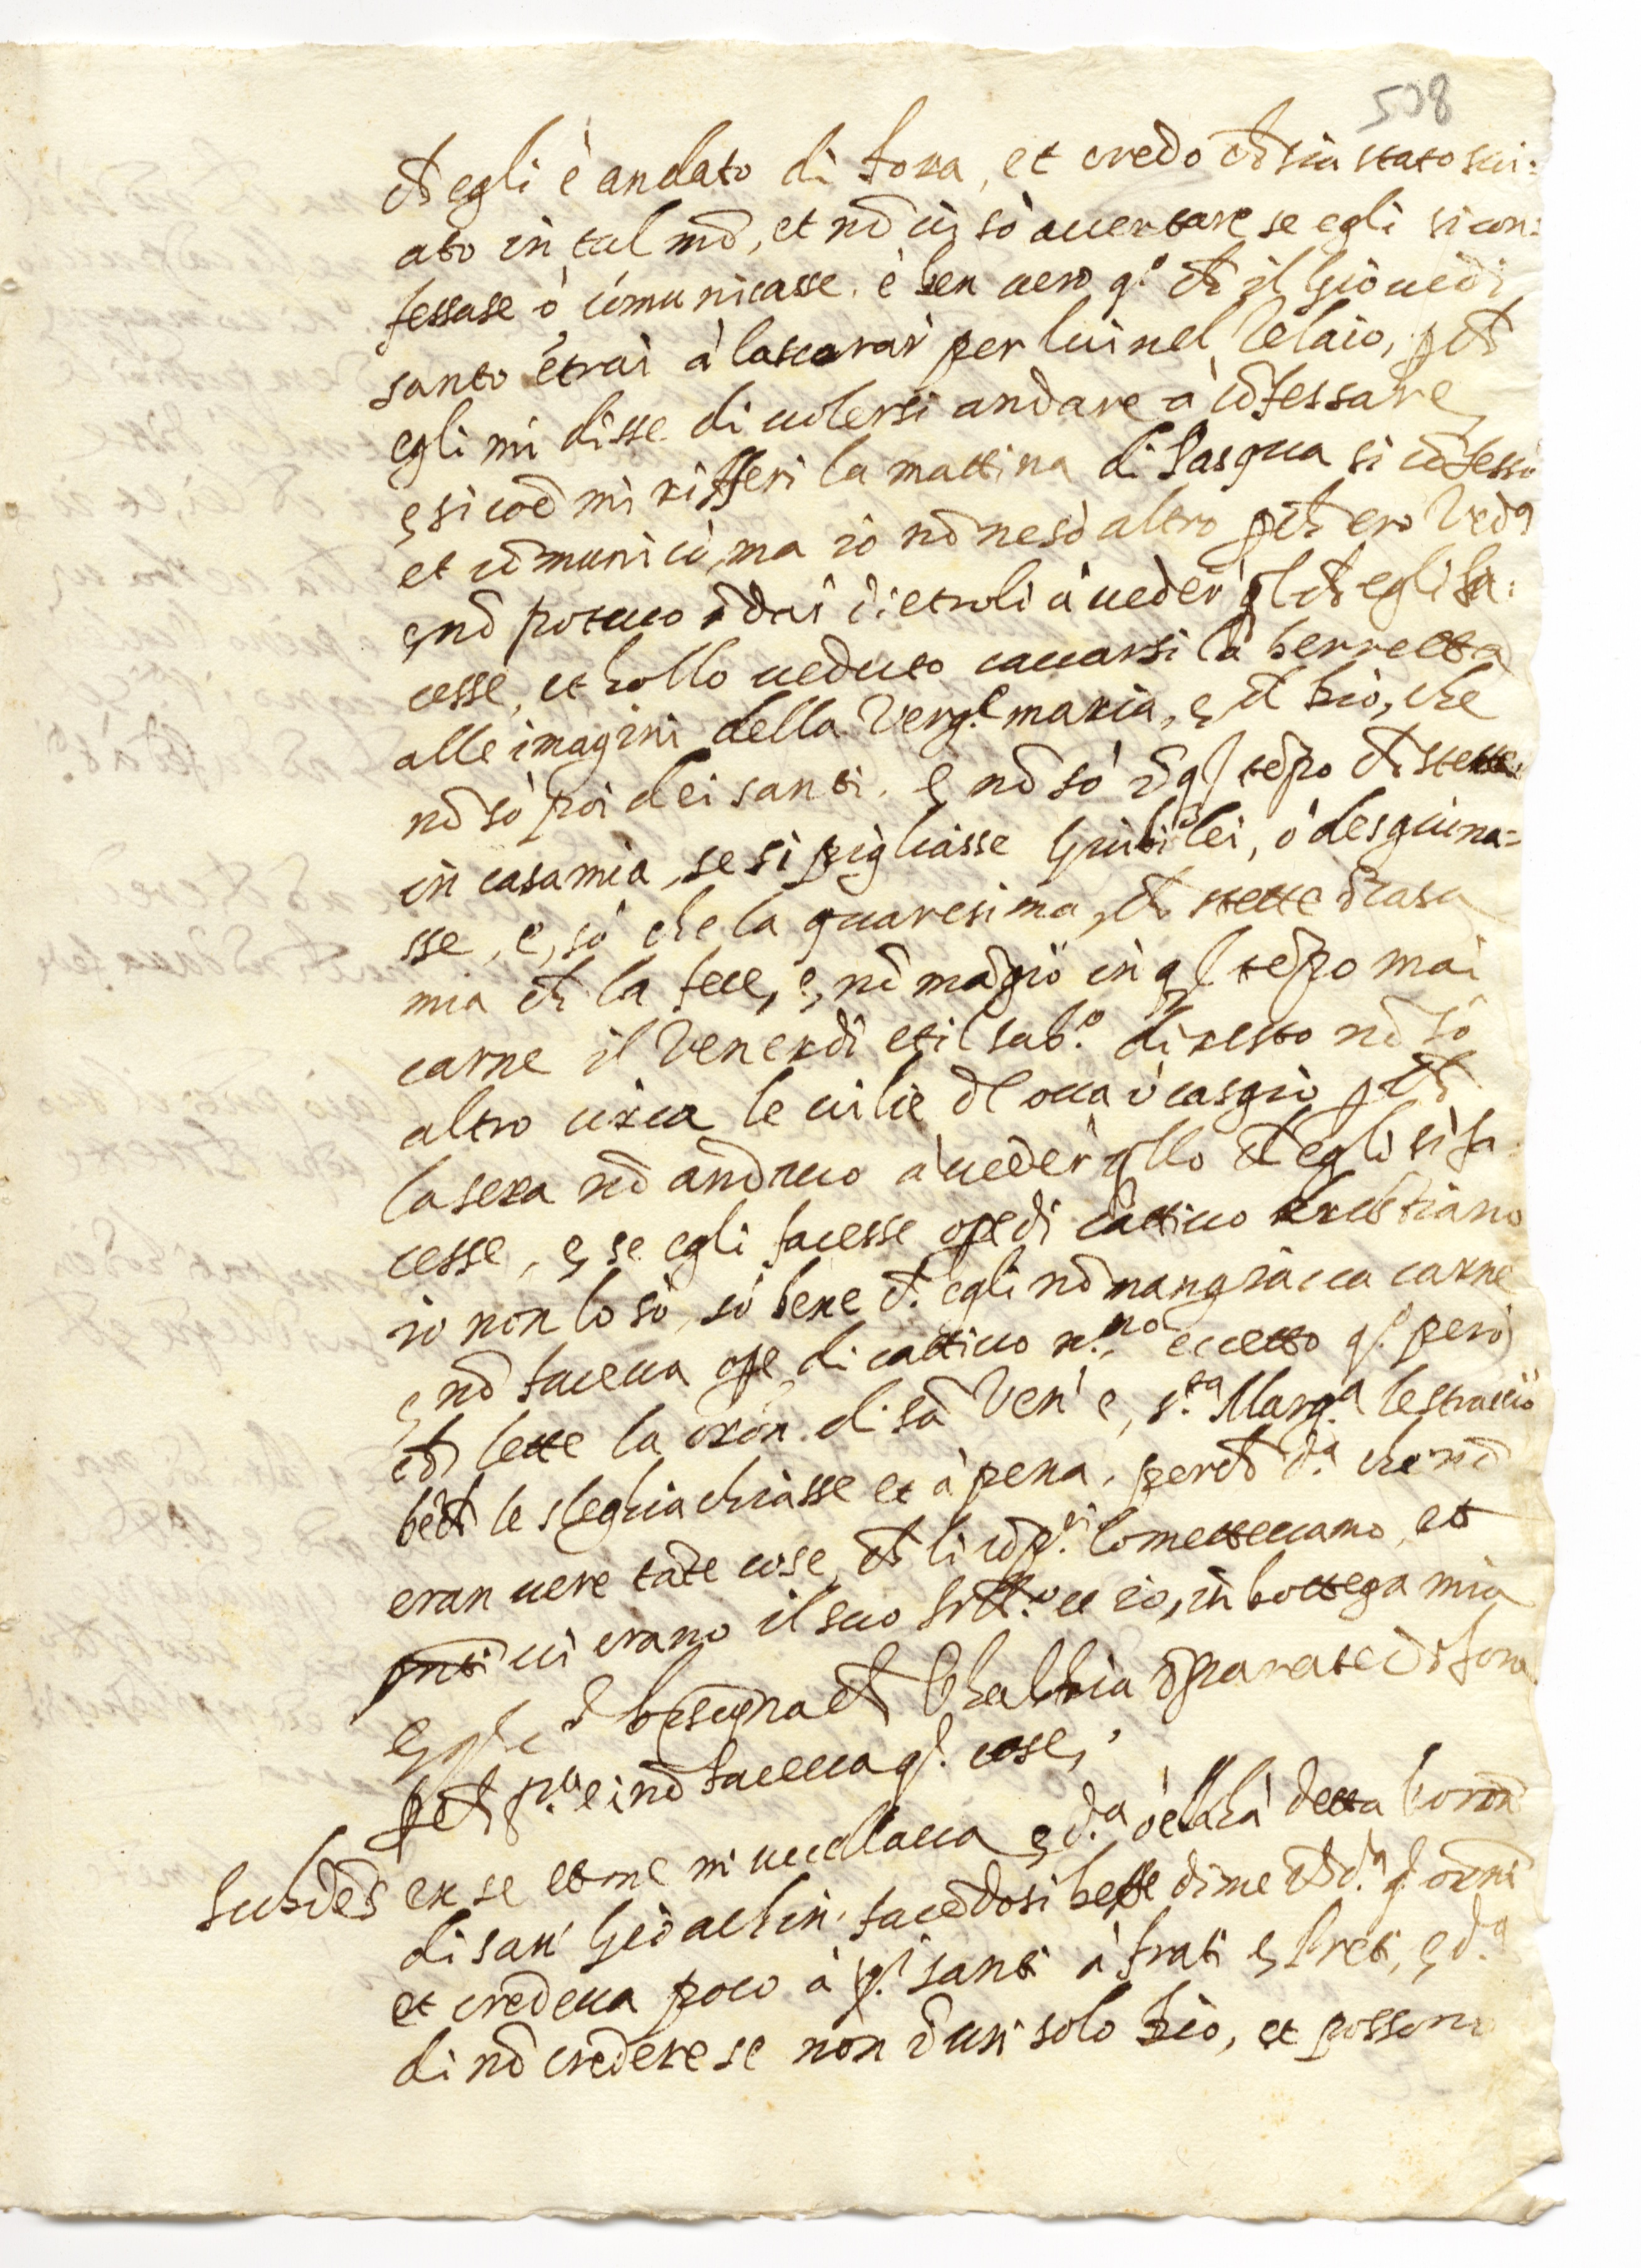 508
ch' egli è andato di fora, et credo ch' sia stato svi:
ato in tal mō, et nō vi so accertare se egli si con:
fessase ò cōmunicasse. è ben vero q.o ch' il Giovedi
santo ētrai à lavorar per lui nel Telaio, pch'
egli mi disse di volersi andare à cōfessare
e, si coē mi rifferi la mattina di Pasqua si cōfessò
et cōmunicò, ma io nō ne sò altro pch' ero Ved.a
e nō potevo ādar dietroli à veder ql ch' egli fa:
cesse, et hollo veduto cavarsi la berretta
alle imagini della Verg.e maria, e, d' Dio, che
nō sò poi dei santi. e, nō sò ī ql tēpo ch' stette
in casa mia, se si pigliasse Giubilei, ò desgiuna=
sse, e, sò che la quaresima, ch' stette ī casa
mia ch' la fece, e, nō māgiò in ql tēpo mai
carne il Venerdi et il sab.o di resto nō sò
altro circa le vilie d' ova ò casgio pch'
la sera nō andavo à veder qllo ch' egli si fa:
cesse, e, se egli facesse ope di cattivo christiano
io non lo sò, sò bene ch' egli nō mangiava carne
e nō faceva ope, di cattivo x.no eccetto q.o però
ch' lette la orōn. di sā Ven.e e, s.ta Marg.a le stracciò
bēch' le sleghiachiasse et à pena. perch' d.a che nō
eran vere tāte cose, ch' li cōp.ri lo mettevano, et
pnti vi erano il suo frēllo et io, in bottega mia
e, bisogna ch' l'habbia īparate di fora
pch' p.a ei nō faceva q.e cose,
Subdēs ex se et me mi uccellava e d.a ò ella hà detta l'orōn
di san Gioachin. facēdosi beffe di me ch' d.a q.e orōni
et credeva poco à q.i santi à frati e, Preti, e d.a
di nō credere se non ī un solo Dio, et possono